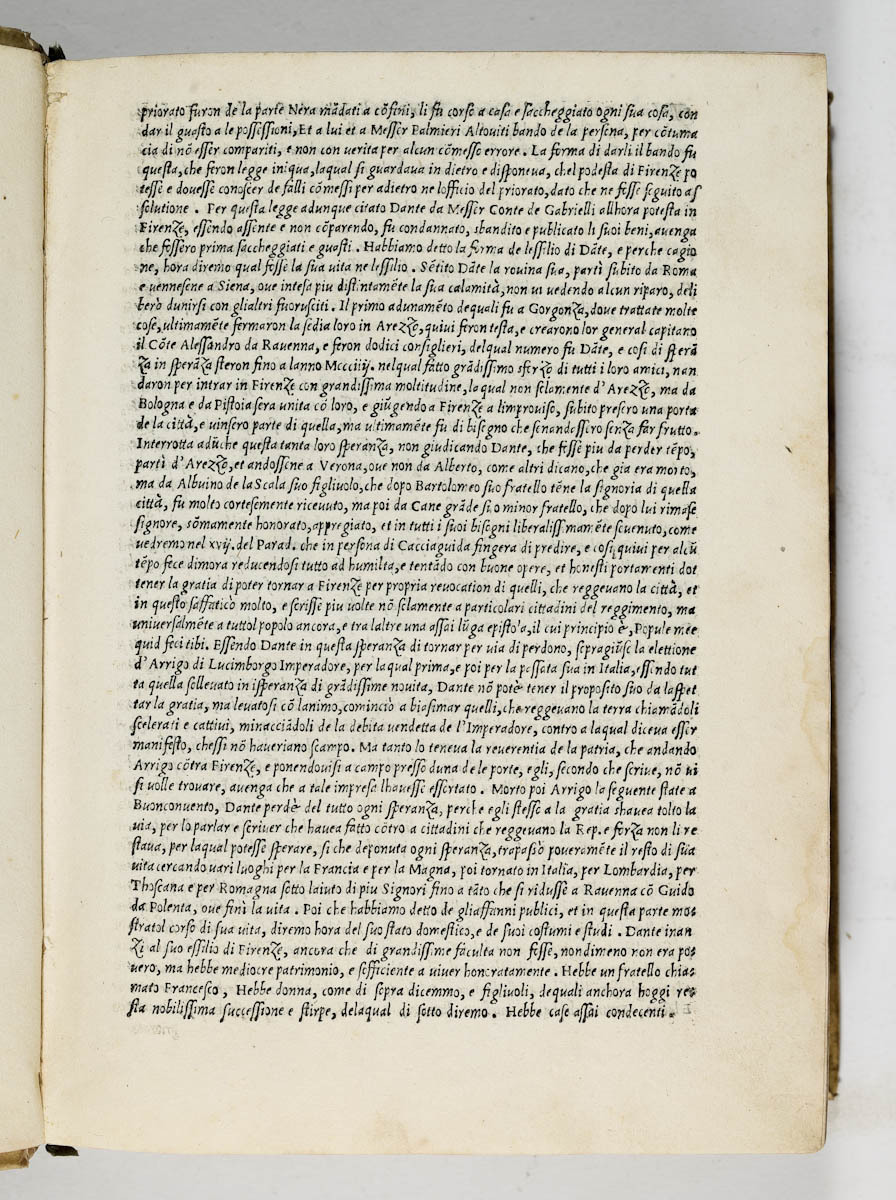 priorato furon de la parte Nera mãdati a cõfini, li fu corso a casa e saccheggiato ogni sua cosa, con
dar il guasto a le possessioni, Et a lui et a Messer Palmieri Altouiti bando de la persona, per cõtuma
cia di nõ esser compariti, e non con verita per alcun cõmesso errore. La forma di darli il bando fu
questa, che feron legge iniqua, laqual si guardaua in dietro e disponeua, chel podesta di Firenze po
tesse e douesse conoscer de falli cõmessi per adietro ne lofficio del priorato, dato che ne fosse seguito as
solutione. Per questa legge adunque citato Dante da Messer Conte de Gabrielli allhora potesta in
Firenze, essendo assente e non cõparendo, fu condannato, sbandito e publicato li suoi beni, auenga
che fossero prima saccheggiati e guasti. Habbiamo detto la forma de lessilio di Dãte, e perche cagio
ne, hora diremo qual fosse la sua vita ne lessilio. Sẽtito Dãte la rouina sua, partì subito da Roma
e uennesene a Siena, oue intesa piu distintamẽte la sua calamità, non ui uedendo alcun riparo, deli
berò dunirsi con glialtri fuorusciti. Il primo adunamẽto dequali fu a Gorgonza, doue trattate molte
cose, ultimamẽte fermaron la sedia loro in Arezzo, quiui feron testa, e crearono lor general capitano
il Cõte Alessandro da Rauenna, e feron dodici consiglieri, delqual numero fu Dãte, e cosi di sperã
za in sperãza steron fino a lanno Mcciiij. nelqual fatto grãdissimo sforzo di tutti i loro amici, nan
daron per intrar in Firenze con grandissima moltitudine, la qual non solamente d'Arezzo, ma da
Bologna e da Pistoia sera unita cõ loro, e giũgendo a Firenze a limprouiso, subito presero una porta
de la città, e uinsero parte di quella, ma ultimamẽte fu di bisogno che senandassero senza far frutto.
Interrotta adũche questa tanta loro speranza, non giudicando Dante, che fosse piu da perder tẽpo,
partì d'Arezzo, et andossene a Verona, oue non da Alberto, come altri dicano, che gia era morto,
ma da Albuino de la Scala suo figliuolo, che dopo Bartolomeo suo fratello tẽne la signoria di quella
città, fu molto cortesemente riceuuto, ma poi da Cane grãde suo minor fratello, che dopo lui rimase
signore, sõmamente honorato, appregiato, et in tutti i suoi bisogni liberalissimamẽte souenuto, come
uedremo nel xvij. del Parad. che in persona di Cacciaguida fingera di predire, e cosi quiui per alcũ
tẽpo fece dimora reducendosi tutto ad humilta, e tentãdo con buone opere, et honesti portamenti dot
tener la gratia di poter tornar a Firenze per propria reuocation di quelli, che reggeuano la città, et
in questo saffatico molto, e scrisse piu uolte nõ solamente a particolari cittadini del reggimento, ma
uniuersalmẽte a tuttol popolo ancora, e tra laltre una assai lũga epistola, il cui principio è, Popule mee
quid feci tibi. Essendo Dante in questa speranza di tornar per uia di perdono, sopragiũse la elettione
d'Arrigo di Lucimborgo Imperadore, per laqual prima, e poi per la passata sua in Italia, essendo tut
ta quella solleuato in isperanza di grãdissime nouita, Dante nõ potè tener il proposito suo da laspet
tar la gratia, ma leuatosi cõ lanimo, cominciò a biasimar quelli, che reggeuano la terra chiamãdoli
scelerati e cattiui, minacciãdoli de la debita uendetta de l'Imperadore, contro a laqual diceua esser
manifesto, chessi nõ haueriano scampo. Ma tanto lo teneua la reuerentia de la patria, che andando
Arrigo cõtra Firenze, e ponendouisi a campo presso duna de le porte, egli, secondo che scriue, nõ ui
si uolle trouare, auenga che a tale impresa lhauesse essortato. Morto poi Arrigo la seguente state a
Buonconuento, Dante perdè del tutto ogni speranza, perche egli stesso a la gratia shauea tolto la
uia, per lo parlar e scriuer che hauea fatto cõtro a cittadini che reggeuano la Rep. e forza non li re
staua, per laqual potesse sperare, si che deponuta ogni speranza, trapassò poueramẽte il resto di sua
uita cercando uari luoghi per la Francia e per la Magna, poi tornato in Italia, per Lombardia, per
Thoscana e per Romagna sotto laiuto di piu Signori fino a tãto che si ridusse a Rauenna cõ Guido
da Polenta, oue finì la uita. Poi che habbiamo detto de gliaffanni publici, et in questa parte mos
stratol corso di sua uita, diremo hora del suo stato domestico, e de suoi costumi e studi. Dante inan
zi al suo essilio di Firenze, ancora che di grandissime faculta non fosse, nondimeno non era po
uero, ma hebbe mediocre patrimonio, e sofficiente a uiuer honoratamente. Hebbe un fratello chia
mato Francesco, Hebbe donna, come di sopra dicemmo, e figliuoli, dequali anchora hoggi re
sta nobilissima successione e stirpe, delaqual di sotto diremo. Hebbe case assai condecenti